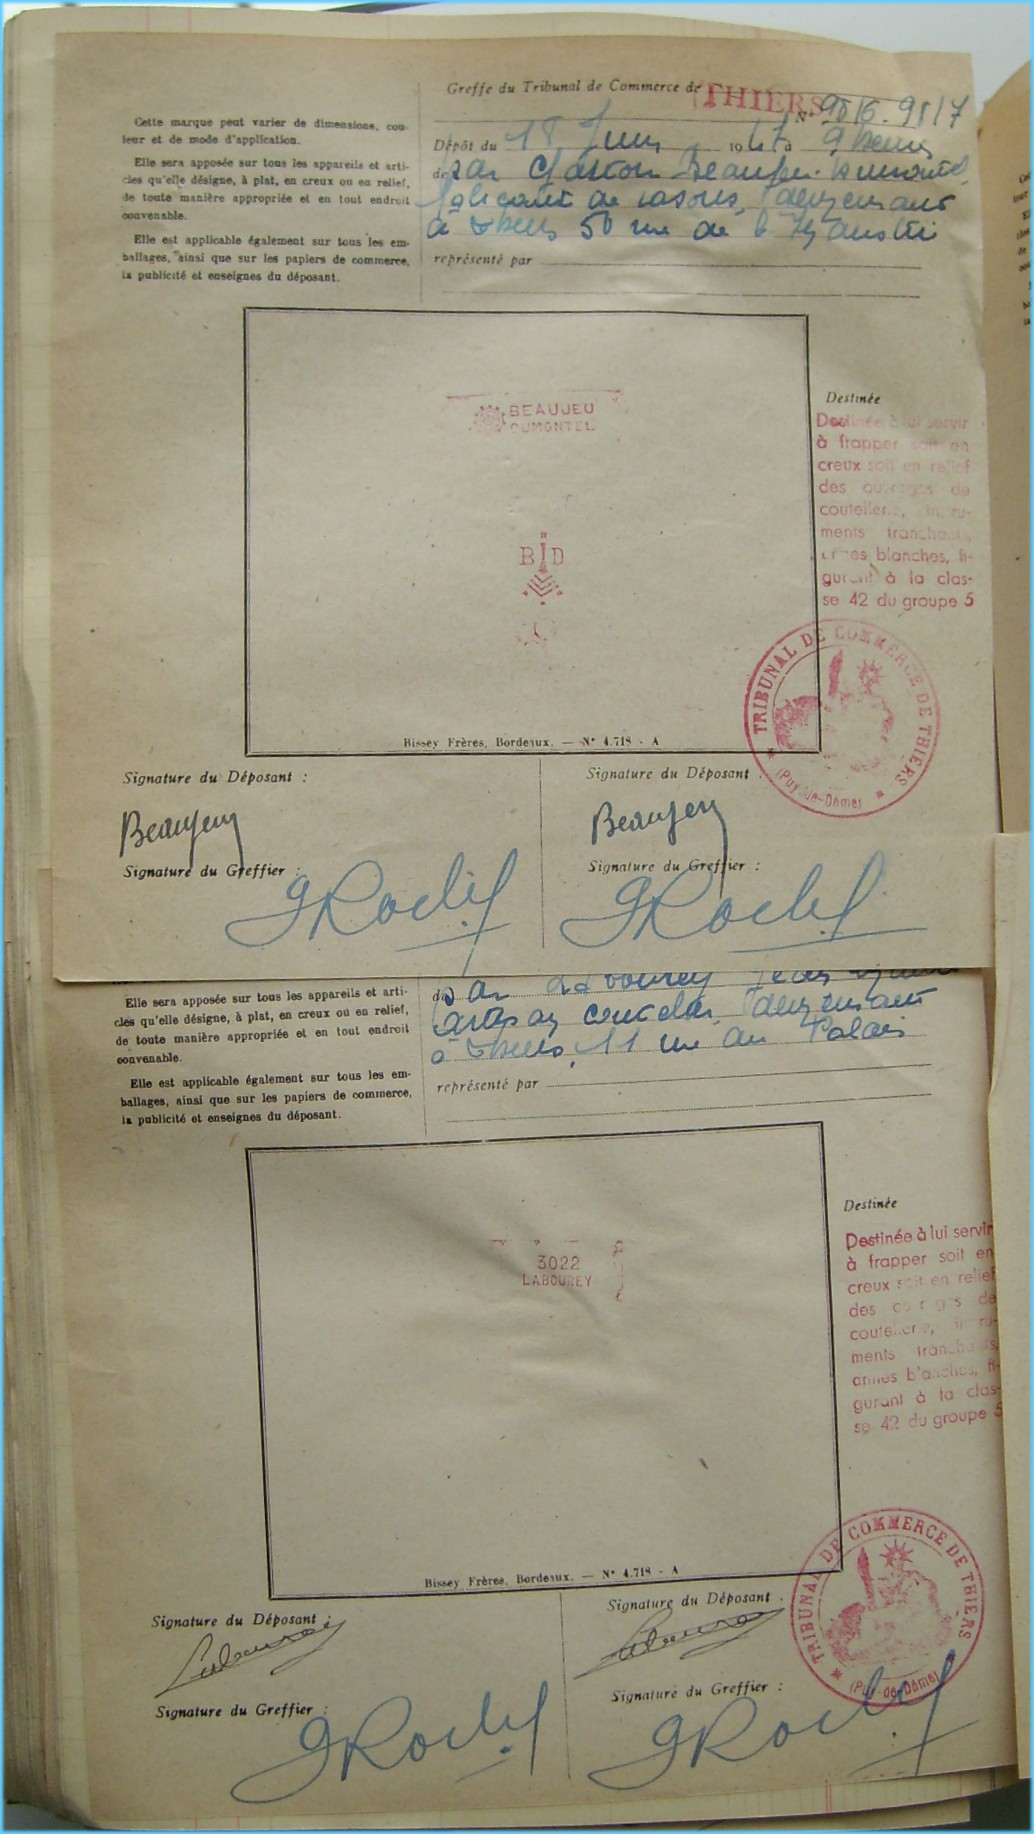 Greffe du Tribunal de Commerce de THIERS
N° 9816-9817
Cette marque peut varier de dimensions, cou-
leur et de mode d'application.
Elle sera apposée sur tous les appareils et arti-
cles qu'elle désigne, à plat, en creux ou en relief,
de toute manière appropriée et en tout endroit
convenable.
Elle est applicable également sur tous les em-
ballages, ainsi que sur les papiers de commerce,
la publicité et enseignes du déposant.
Dépôt du 18 Juin 1947 à 9 heures
par Gaston Beaujeu
fabricant de rasoirs, demeurant
à Thiers 50 rue de
représenté par
BEAUJEU
DUMONTEL
B D
Destinée
Destinée à lui servir
à frapper soit en
creux soit en relief
des ouvrages de
coutellerie, instru-
ments tranchants,
armes blanches, fi-
gurant à la clas-
se 42 du groupe 5
TRIBUNAL DE COMMERCE DE THIERS
(Puy-de-Dôme)
Bissey Frères, Bordeaux. — N° 4.718 - A
Signature du Déposant :
Signature du Déposant :
Beaujeu
Beaujeu
Signature du Greffier :
Signature du Greffier :
Elle sera apposée sur tous les appareils et arti-
cles qu'elle désigne, à plat, en creux ou en relief,
de toute manière appropriée et en tout endroit
convenable.
Elle est applicable également sur tous les em-
ballages, ainsi que sur les papiers de commerce,
la publicité et enseignes du déposant.
par Labourey Jean
artisan coutelier, demeurant
à Thiers, 11 rue du Palais
représenté par
3022
LABOUREY
Destinée
Destinée à lui servir
à frapper soit en
creux soit en relief
des ouvrages de
coutellerie, instru-
ments tranchants,
armes blanches, fi-
gurant à la clas-
se 42 du groupe 5
TRIBUNAL DE COMMERCE DE THIERS
(Puy-de-Dôme)
Bissey Frères, Bordeaux. — N° 4.718 - A
Signature du Déposant :
Signature du Déposant :
Labourey
Labourey
Signature du Greffier :
Signature du Greffier :